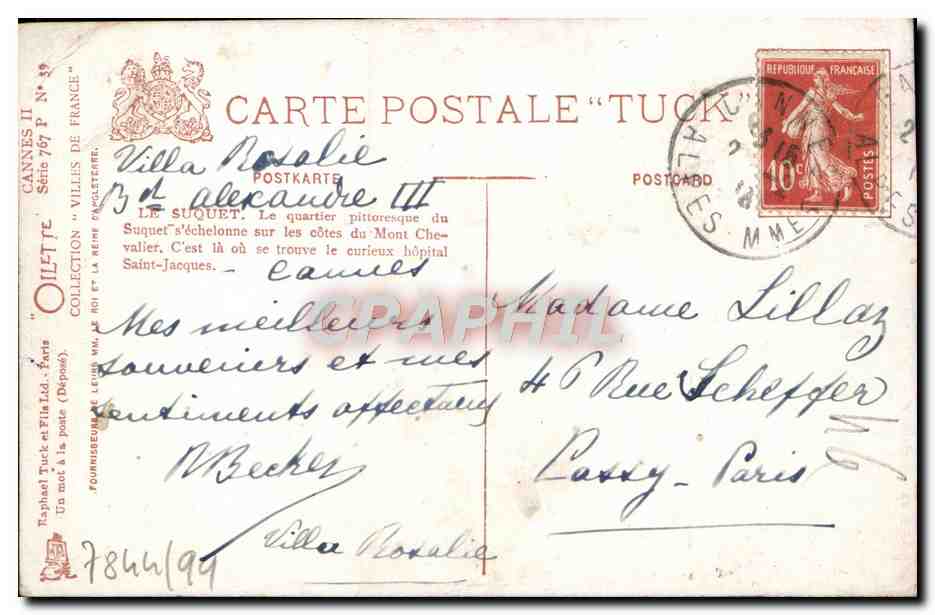 CARTE POSTALE "TUCK"
POSTKARTE
POSTCARD
Villa Rosalie
Bd alexandre III
LE SUQUET. Le quartier pittoresque du
Suquet s'échelonne sur les côtes du Mont Che-
valier. C'est là où se trouve le curieux hôpital
Saint-Jacques.
- Cannes
Mes meilleurs
souvenirs et mes
sentiments affectueux
Becker
Villa Rosalie
Madame Lillaz
46 Rue Scheffer
Passy - Paris
46
REPUBLIQUE FRANÇAISE
10c
POSTES
CANNES
ALPES MMES
CPAPHIL
CANNES II
Série 767 P Nº 39
"OILETTE"
COLLECTION "VILLES DE FRANCE"
FOURNISSEURS DE LEURS MM. LE ROI ET LA REINE D'ANGLETERRE.
Raphael Tuck et Fils Ltd. - Paris
Un mot à la poste (Déposé).
7844/94